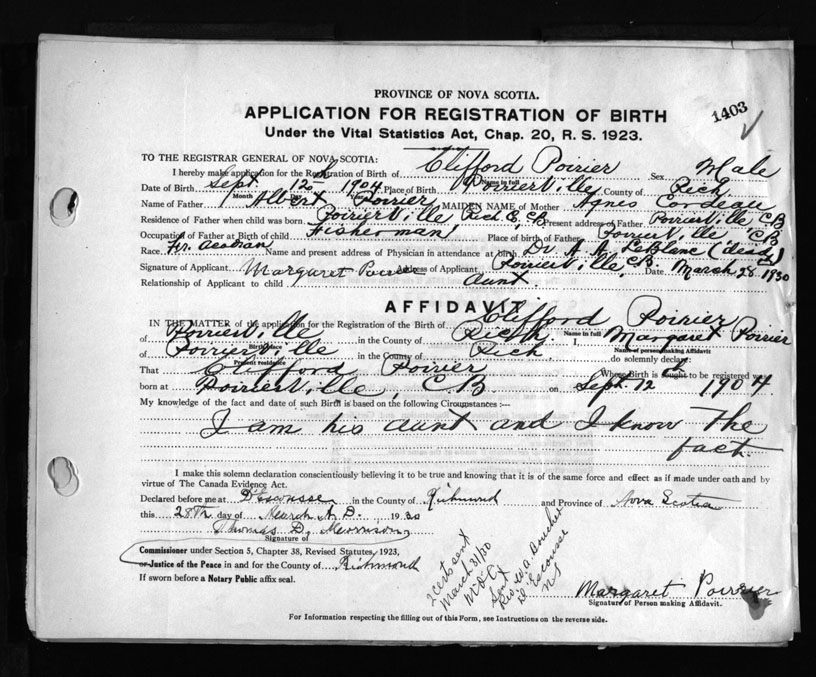 PROVINCE OF NOVA SCOTIA.
1403
APPLICATION FOR REGISTRATION OF BIRTH
Under the Vital Statistics Act, Chap. 20, R. S. 1923.
TO THE REGISTRAR GENERAL OF NOVA SCOTIA:
I hereby make application for the Registration of Birth of Clifford Poirier Sex Male
Name in full
Date of Birth Sept. 12th 1904 Place of Birth Poirierville County of Rich.
Month Year
Name of Father Albert Poirier MAIDEN NAME of Mother Agnes Cordeau
Residence of Father when child was born Poirierville Rich C, CB Present address of Father Poirierville CB
Occupation of Father at Birth of child Fisherman Place of birth of Father Poirierville CB
Race Fr. Acadian Name and present address of Physician in attendance at birth Dr A. A. LeBlanc (dead)
Signature of Applicant Margaret Poirier Address of Applicant Poirierville, CB. Date March 28 1930
Relationship of Applicant to child aunt
AFFIDAVIT
IN THE MATTER of the application for the Registration of the Birth of Clifford Poirier
Name in full
of Poirierville in the County of Rich. I, Margaret Poirier
Birth place Name of person making Affidavit
of Poirierville in the County of Rich do solemnly declare:
Present residence
That Clifford Poirier Whose Birth is sought to be registered was
born at Poirierville, C.B. on Sept. 12th 1904.
My knowledge of the fact and date of such Birth is based on the following Circumstances :—
I am his aunt and I know the
fact.
I make this solemn declaration conscientiously believing it to be true and knowing that it is of the same force and effect as if made under oath and by
virtue of The Canada Evidence Act.
Declared before me at D'Escousse in the County of Richmond and Province of Nova Scotia
this 28th day of March A. D. 1930
Thomas D. Morrison
Signature of
Commissioner under Section 5, Chapter 38, Revised Statutes, 1923,
or Justice of the Peace in and for the County of Richmond
If sworn before a Notary Public affix seal.
2 certs sent
March 31/30
Sent
Rev. W A Boucher
D'Escousse
NS
Margaret Poirier
Signature of Person making Affidavit.
For Information respecting the filling out of this Form, see Instructions on the reverse side.